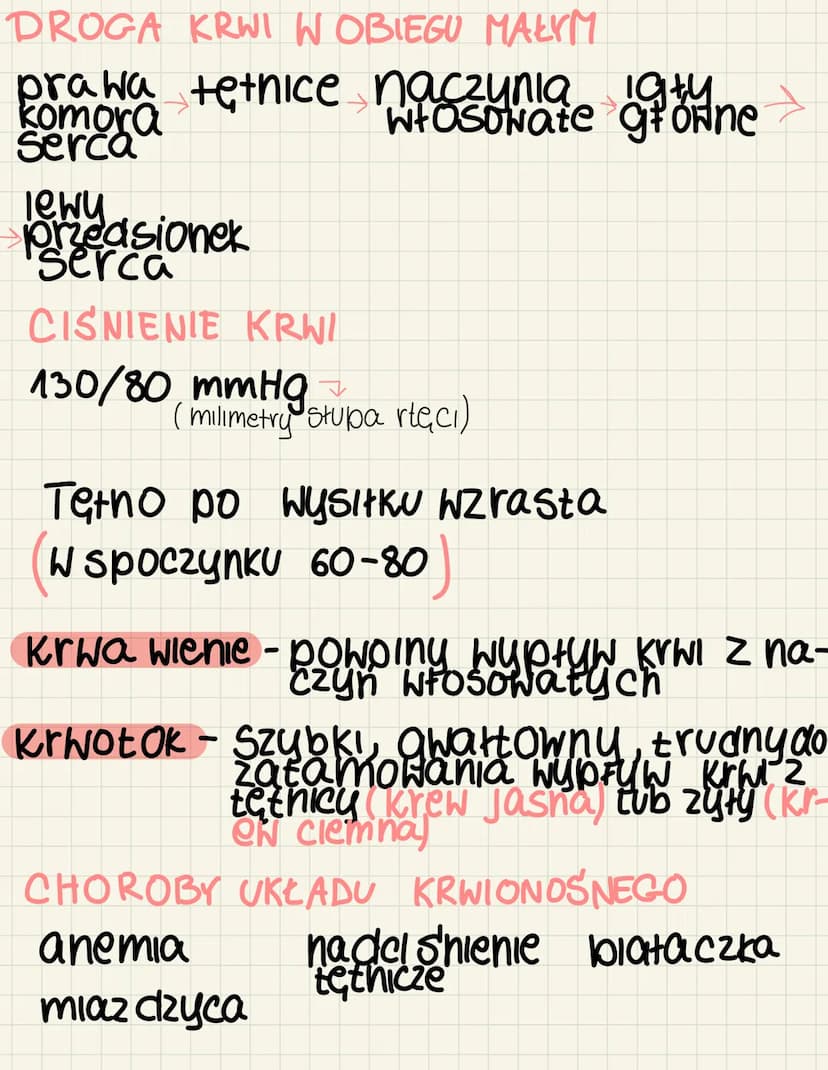 DROGA KRWI W OBIEGU MAŁYM
prawa komora serca → tętnice → naczynia włosowate → igły główne →
→ lewy przedsionek serca
CIŚNIENIE KRWI
130/80 mmHg
(milimetry słupa rtęci)
Tętno po wysiłku wzrasta
(w spoczynku 60-80)
Krwawienie - powolny wypływ krwi z na-
czyń włosowatych
Krwotok - szybki, gwałtowny, trudny do
zatamowania wypływ krwi z
tętnicy (krew jasna) lub żyły (kr-
ew ciemna)
CHOROBY UKŁADU KRWIONOŚNEGO
anemia nadciśnienie tętnicze białaczka
miażdżyca